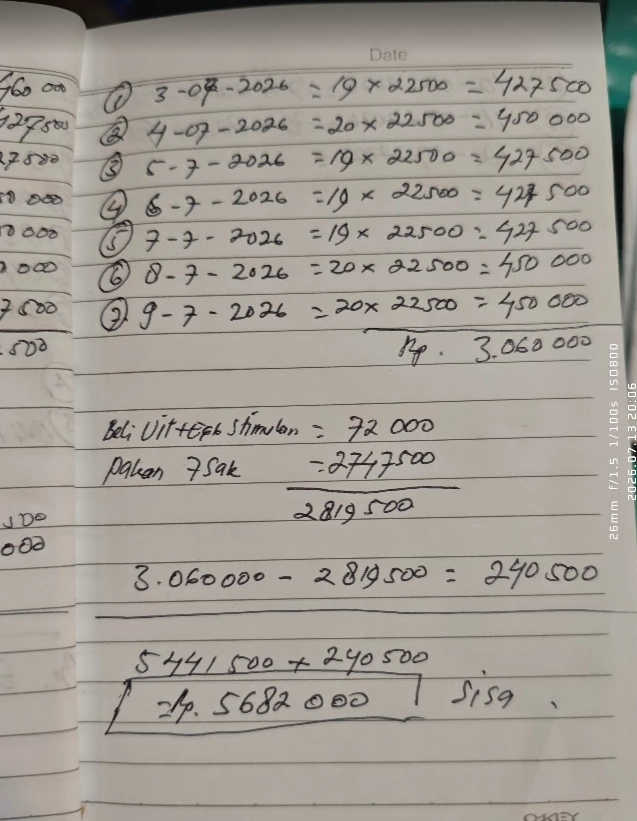 Date
① 3-07-2026 = 19 x 22500 = 427500
② 4-07-2026 = 20 x 22500 = 450 000
③ 5-7-2026 = 19 x 22500 = 427 500
④ 6-7-2026 = 19 x 22500 = 427 500
⑤ 7-7-2026 = 19 x 22500 = 427 500
⑥ 8-7-2026 = 20 x 22500 = 450 000
⑦ 9-7-2026 = 20 x 22500 = 450 000
Rp. 3.060 000
Beli Vit+Egg Stimulan = 72 000
pakan 7 Sak = 2747500
2819 500
3.060000 - 2819500 = 240 500
5441 500 + 240 500
=Rp. 5682 000 Sisa.
460 00
127500
27500
50 000
50 000
000
7 500
.500
000
26mm f/1.5 1/100s ISO800
2026.07.13 20:06